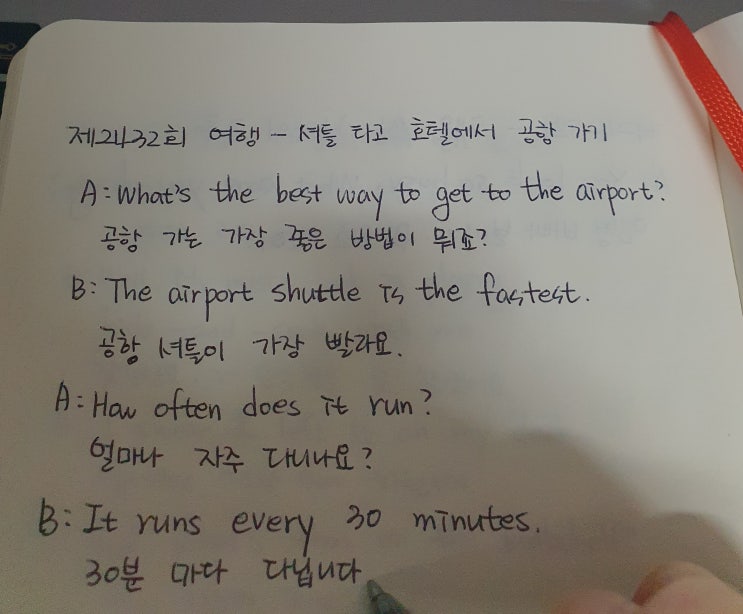 제2432회 여행 - 셔틀 타고 호텔에서 공항 가기
A: What's the best way to get to the airport?
공항 가는 가장 좋은 방법이 뭐죠?
B: The airport shuttle is the fastest.
공항 셔틀이 가장 빨라요.
A: How often does it run?
얼마나 자주 다니나요?
B: It runs every 30 minutes.
30분 마다 다닙니다